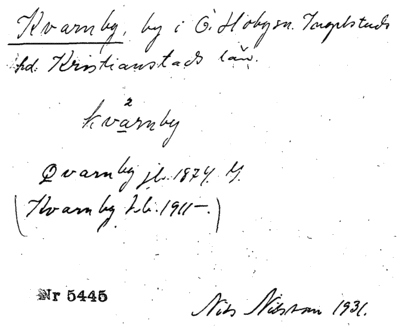 Kvarnby, by i Ö. Hoby sn. Ingelstads
hd. Kristianstads län.
2
kvarnby
Qvarnby jb. 1874.
(Kvarnby kb. 1911-.)
Nr 5445
Nils Nilsson 1931.